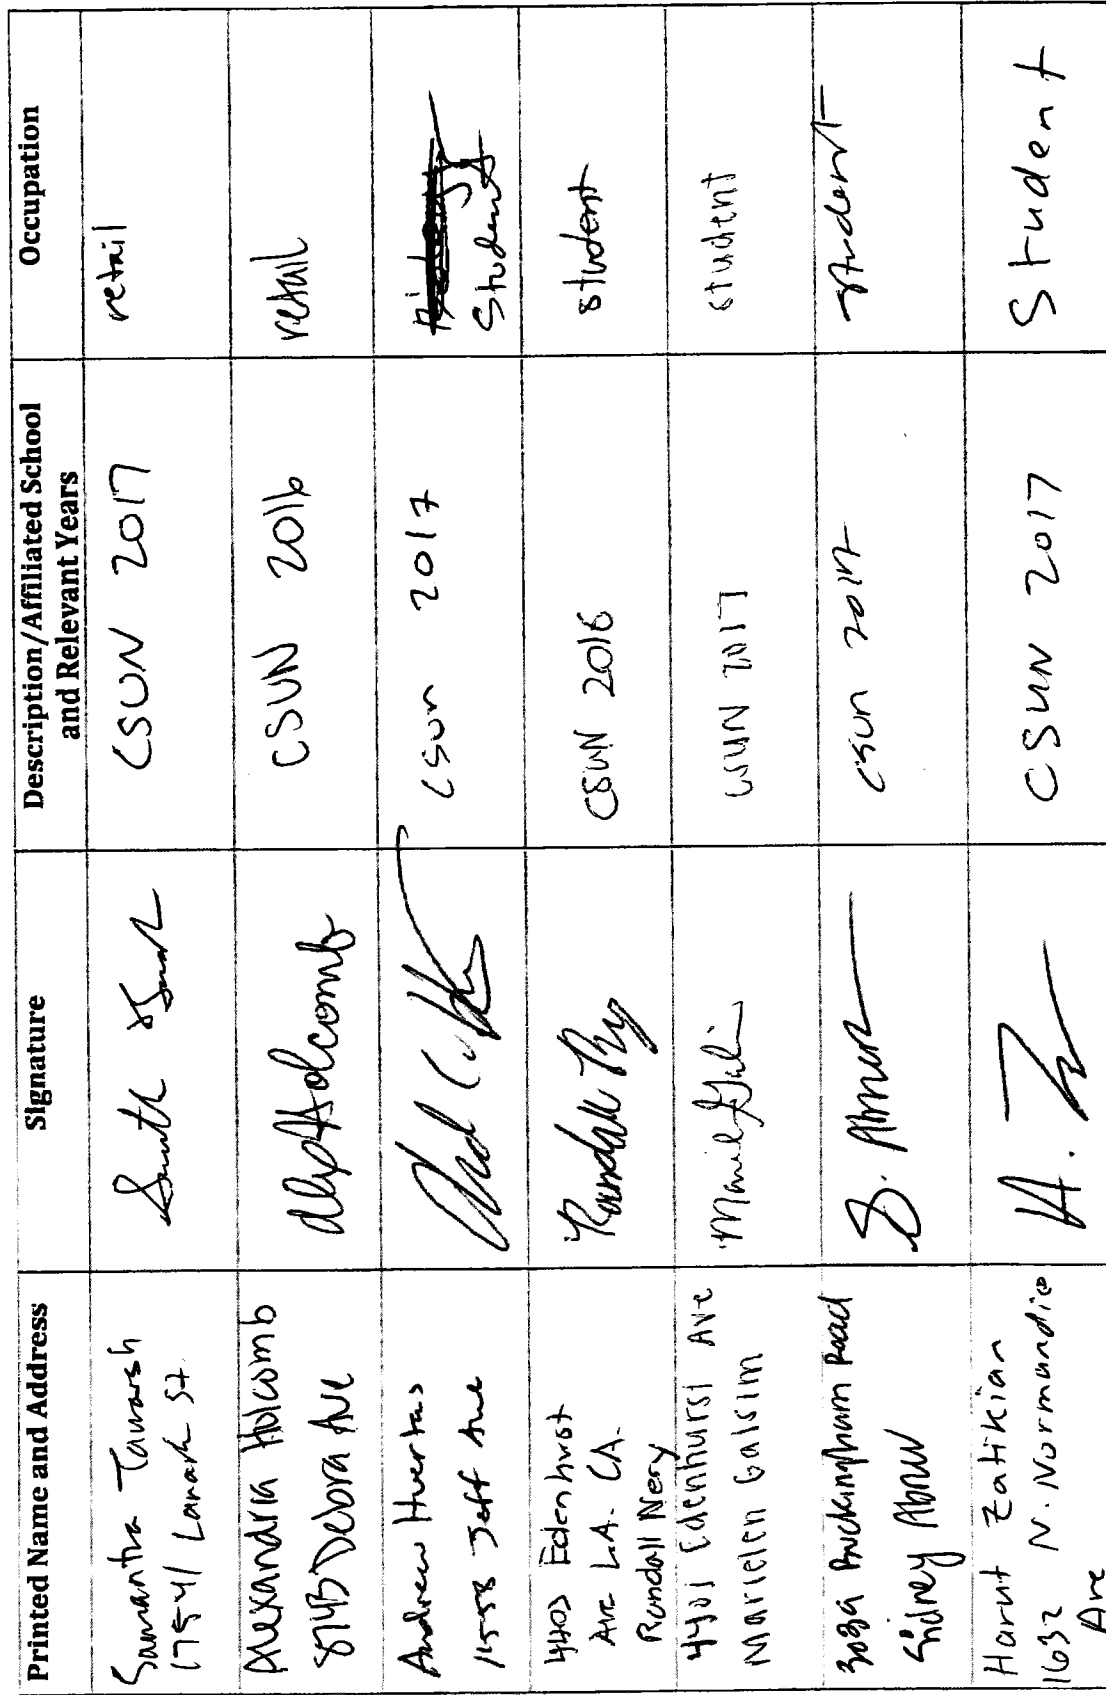 Printed Name and Address
Signature
Description/Affiliated School
and Relevant Years
Occupation
Samantha
17541 Lanark St.
CSUN 2017
retail
Alexandra Holcomb
8745 Debora Ave
CSUN 2016
retail
Andrew Huertas
11558 Jeff Ave
CSUN 2017
Student
4403 Edenhurst
Ave L.A. CA.
Randall Nery
CSUN 2016
student
Edenhurst Ave
Marielen Galsim
CSUN 2017
student
Buckingham Road
Sidney Abner
S. Abner
CSUN 2017
student
Harut Zatikian
1632 N. Normandie
Ave
H. Z
CSUN 2017
Student